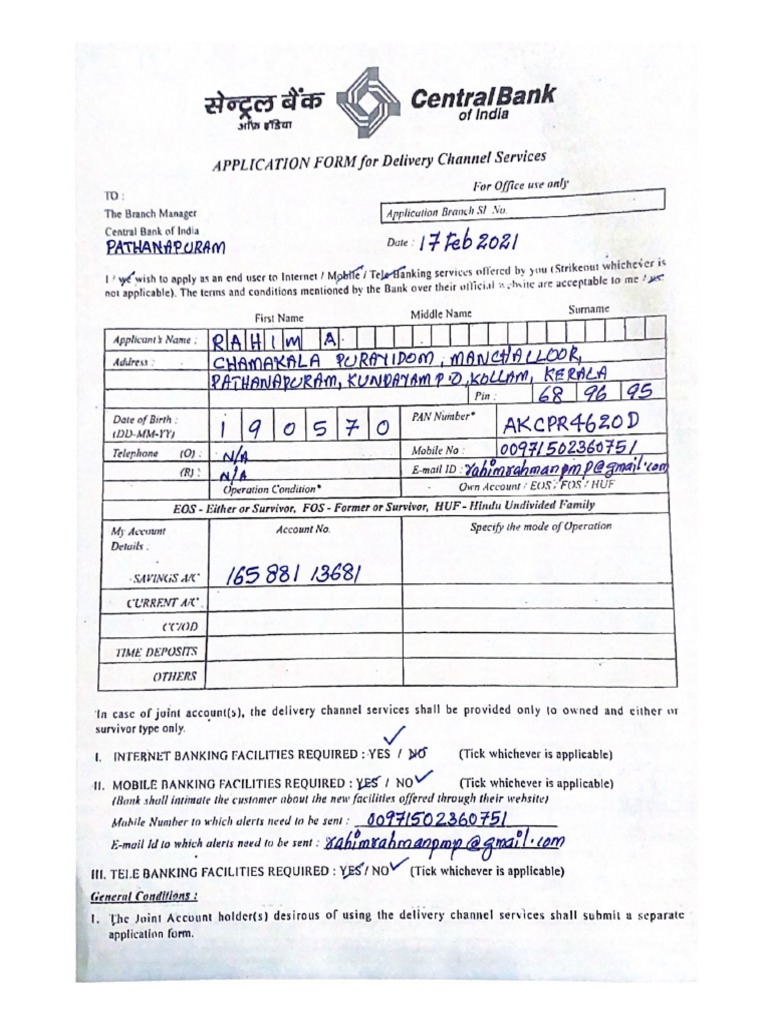 सेन्ट्रल बैंक Central Bank
ऑफ़ इंडिया of India
APPLICATION FORM for Delivery Channel Services
For Office use only
TO :
The Branch Manager
Application Branch Sl No.
Central Bank of India
PATHANAPURAM
Date : 17 Feb 2021
I / we wish to apply as an end user to Internet / Mobile / Tele Banking services offered by you (Strikeout whichever is
not applicable). The terms and conditions mentioned by the Bank over their official website are acceptable to me / us.
First Name Middle Name Surname
Applicant's Name : RAHIM A.
Address : CHAMAKALA PURAYIDOM, MANCHALLOOR,
PATHANAPURAM, KUNDAYAM P.O, KOLLAM, KERALA
Pin : 68 96 95
Date of Birth : 190570 PAN Number* AKCPR4620D
(DD-MM-YY)
Telephone (O) : N/A Mobile No : 00971502360751
(R) : N/A E-mail ID : rahimrahmanpmp@gmail.com
Operation Condition* Own Account / EOS / FOS / HUF
EOS - Either or Survivor, FOS - Former or Survivor, HUF - Hindu Undivided Family
My Account Account No. Specify the mode of Operation
Details :
SAVINGS A/C 165 881 13681
CURRENT A/C
CC/OD
TIME DEPOSITS
OTHERS
In case of joint account(s), the delivery channel services shall be provided only to owned and either or
survivor type only.
I. INTERNET BANKING FACILITIES REQUIRED : YES / NO (Tick whichever is applicable)
II. MOBILE BANKING FACILITIES REQUIRED : YES / NO (Tick whichever is applicable)
(Bank shall intimate the customer about the new facilities offered through their website)
Mobile Number to which alerts need to be sent : 00971502360751
E-mail Id to which alerts need to be sent : rahimrahmanpmp@gmail.com
III. TELE BANKING FACILITIES REQUIRED : YES / NO (Tick whichever is applicable)
General Conditions :
1. The Joint Account holder(s) desirous of using the delivery channel services shall submit a separate
application form.